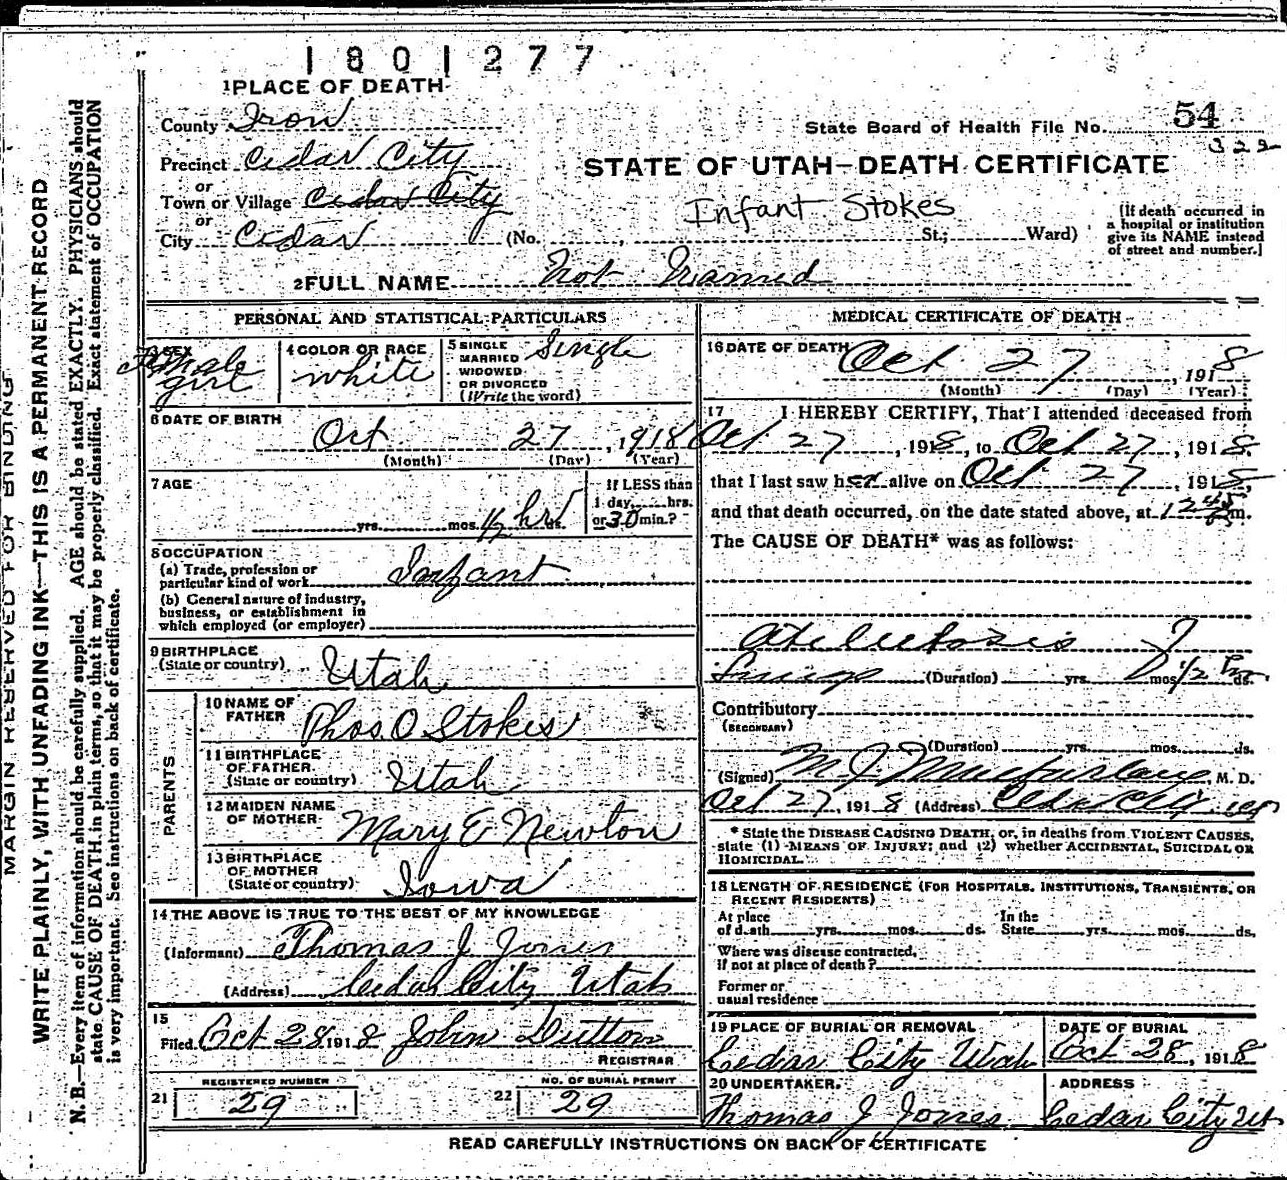 1801277
1 PLACE OF DEATH
County Iron
State Board of Health File No. 54
322
Precinct Cedar City
STATE OF UTAH—DEATH CERTIFICATE
or
Town or Village Cedar City
or
City Cedar
Infant Stokes
(No. , St.; Ward)
(If death occurred in
a hospital or institution
give its NAME instead
of street and number.)
2 FULL NAME Not Named
PERSONAL AND STATISTICAL PARTICULARS
3 SEX
Female
girl
4 COLOR OR RACE
white
5 SINGLE
MARRIED
WIDOWED
OR DIVORCED
(Write the word)
Single
6 DATE OF BIRTH
Oct 27, 1918
(Month) (Day) (Year)
7 AGE
yrs. mos. 1/2 hr
If LESS than
1 day, hrs.
or 30 min.?
8 OCCUPATION
(a) Trade, profession or
particular kind of work Infant
(b) General nature of industry,
business, or establishment in
which employed (or employer)
9 BIRTHPLACE
(State or country) Utah
PARENTS
10 NAME OF
FATHER Thos. O Stokes
11 BIRTHPLACE
OF FATHER
(State or country) Utah
12 MAIDEN NAME
OF MOTHER Mary E Newton
13 BIRTHPLACE
OF MOTHER
(State or country) Iowa
14 THE ABOVE IS TRUE TO THE BEST OF MY KNOWLEDGE
(Informant) Thomas J Jones
(Address) Cedar City Utah
15
Filed Oct 28 1918 John Dutton
REGISTRAR
21 REGISTERED NUMBER
29
22 NO. OF BURIAL PERMIT
29
MEDICAL CERTIFICATE OF DEATH
16 DATE OF DEATH
Oct 27, 1918
(Month) (Day) (Year)
17 I HEREBY CERTIFY, That I attended deceased from
Oct 27, 1918, to Oct 27, 1918.
that I last saw her alive on Oct 27, 1918,
and that death occurred, on the date stated above, at 12 45 m.
The CAUSE OF DEATH* was as follows:
Atelectasis of
Lungs (Duration) yrs. mos. 1/2 hr ds.
Contributory
(SECONDARY)
(Duration) yrs. mos. ds.
(Signed) M J Macfarlane, M. D.
Oct 27, 1918 (Address) Cedar City
* State the DISEASE CAUSING DEATH, or, in deaths from VIOLENT CAUSES,
state (1) MEANS OF INJURY; and (2) whether ACCIDENTAL, SUICIDAL OR
HOMICIDAL.
18 LENGTH OF RESIDENCE (FOR HOSPITALS, INSTITUTIONS, TRANSIENTS, OR
RECENT RESIDENTS)
At place In the
of death yrs. mos. ds. State yrs. mos. ds.
Where was disease contracted,
if not at place of death?
Former or
usual residence
19 PLACE OF BURIAL OR REMOVAL
Cedar City Utah
DATE OF BURIAL
Oct 28, 1918
20 UNDERTAKER.
Thomas J Jones
ADDRESS
Cedar City Ut
READ CAREFULLY INSTRUCTIONS ON BACK OF CERTIFICATE
MARGIN RESERVED FOR BINDING
WRITE PLAINLY, WITH UNFADING INK—THIS IS A PERMANENT RECORD
N. B.—Every item of information should be carefully supplied. AGE should be stated EXACTLY. PHYSICIANS should
state CAUSE OF DEATH in plain terms, so that it may be properly classified. Exact statement of OCCUPATION
is very important. See instructions on back of certificate.